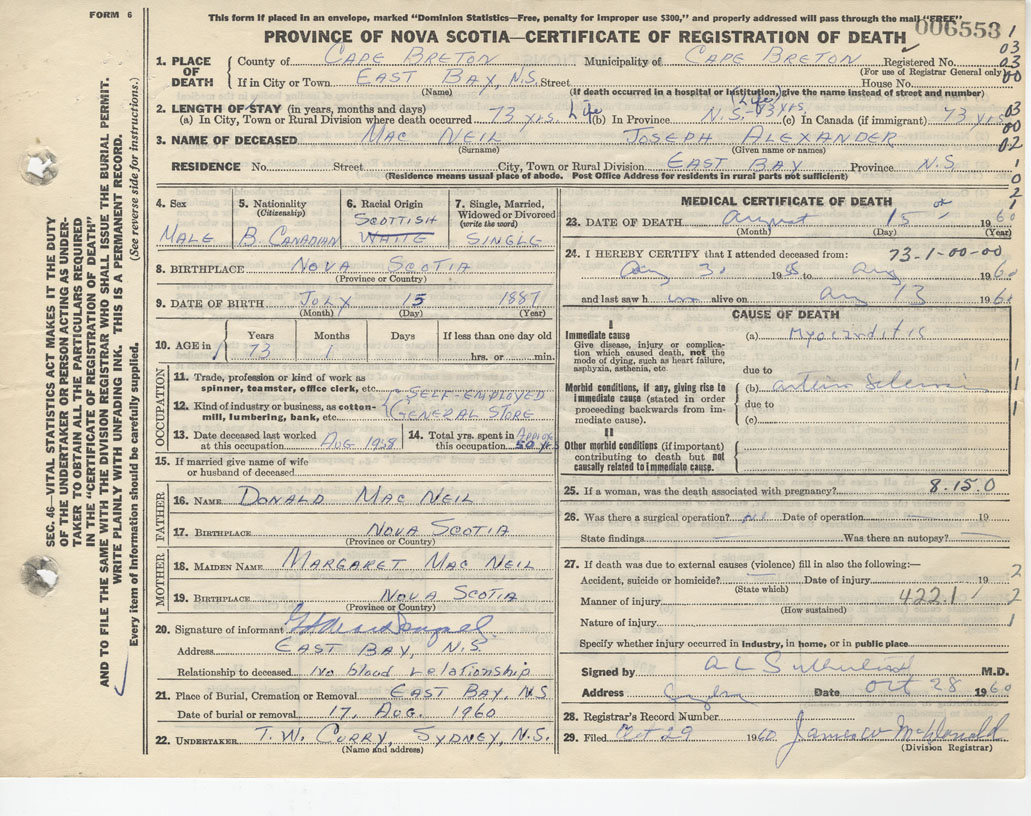 FORM 6
This form if placed in an envelope, marked "Dominion Statistics—Free, penalty for improper use $300," and properly addressed will pass through the mail "FREE"
006553
PROVINCE OF NOVA SCOTIA—CERTIFICATE OF REGISTRATION OF DEATH
1. PLACE OF DEATH
County of CAPE BRETON Municipality of CAPE BRETON Registered No.
(For use of Registrar General only)
If in City or Town EAST BAY, N.S. Street House No.
(Name) (If death occurred in a hospital or institution, give the name instead of street and number)
2. LENGTH OF STAY (in years, months and days)
(a) In City, Town or Rural Division where death occurred 73 yrs. Life (b) In Province N.S.-73 yrs. (Life) (c) In Canada (if immigrant) 73 yrs
3. NAME OF DECEASED MAC NEIL JOSEPH ALEXANDER
(Surname) (Given name or names)
RESIDENCE No. Street City, Town or Rural Division EAST BAY Province N.S
(Residence means usual place of abode. Post Office Address for residents in rural parts not sufficient)
4. Sex
MALE
5. Nationality
(Citizenship)
B. CANADIAN
6. Racial Origin
SCOTTISH
WHITE
7. Single, Married, Widowed or Divorced
(write the word)
SINGLE
8. BIRTHPLACE NOVA SCOTIA
(Province or Country)
9. DATE OF BIRTH JULY 15 1887
(Month) (Day) (Year)
10. AGE in
Years Months Days If less than one day old
73 1 hrs. or min.
OCCUPATION
11. Trade, profession or kind of work as spinner, teamster, office clerk, etc. SELF-EMPLOYED
12. Kind of industry or business, as cotton-mill, lumbering, bank, etc. GENERAL STORE
13. Date deceased last worked at this occupation AUG 1958
14. Total yrs. spent in this occupation Approx 50 yrs
15. If married give name of wife or husband of deceased
FATHER
16. NAME DONALD MAC NEIL
17. BIRTHPLACE NOVA SCOTIA
(Province or Country)
MOTHER
18. MAIDEN NAME MARGARET MAC NEIL
19. BIRTHPLACE NOVA SCOTIA
(Province or Country)
20. Signature of informant
Address EAST BAY, N.S.
Relationship to deceased No blood relationship
21. Place of Burial, Cremation or Removal EAST BAY, N.S
Date of burial or removal 17. AUG. 1960
22. UNDERTAKER T. W. CURRY, SYDNEY, N.S.
(Name and address)
MEDICAL CERTIFICATE OF DEATH
23. DATE OF DEATH August 15 1960
(Month) (Day) (Year)
24. I HEREBY CERTIFY that I attended deceased from: 73-1-00-00
Aug 30 19 to Aug 1960
and last saw h im alive on Aug 13 1960
CAUSE OF DEATH
I
Immediate cause
Give disease, injury or complication which caused death, not the mode of dying, such as heart failure, asphyxia, asthenia, etc.
(a) Myocarditis
due to
Morbid conditions, if any, giving rise to immediate cause (stated in order proceeding backwards from immediate cause).
(b) arterio Sclerosis
due to
(c)
II
Other morbid conditions (if important) contributing to death but not causally related to immediate cause.
25. If a woman, was the death associated with pregnancy? 8.15.0
26. Was there a surgical operation? Date of operation 19
State findings Was there an autopsy?
27. If death was due to external causes (violence) fill in also the following:—
Accident, suicide or homicide? Date of injury 19
(State which)
Manner of injury 422.1
(How sustained)
Nature of injury
Specify whether injury occurred in industry, in home, or in public place
Signed by A L Sutherland M.D.
Address Sydney Date Oct 28 1960
28. Registrar's Record Number
29. Filed Oct 29 1960 James W McDonald
(Division Registrar)
SEC. 46—VITAL STATISTICS ACT MAKES IT THE DUTY
OF THE UNDERTAKER OR PERSON ACTING AS UNDER-
TAKER TO OBTAIN ALL THE PARTICULARS REQUIRED
IN THE "CERTIFICATE OF REGISTRATION OF DEATH"
AND TO FILE THE SAME WITH THE DIVISION REGISTRAR WHO SHALL ISSUE THE BURIAL PERMIT.
WRITE PLAINLY WITH UNFADING INK. THIS IS A PERMANENT RECORD.
Every item of information should be carefully supplied. (See reverse side for instructions.)